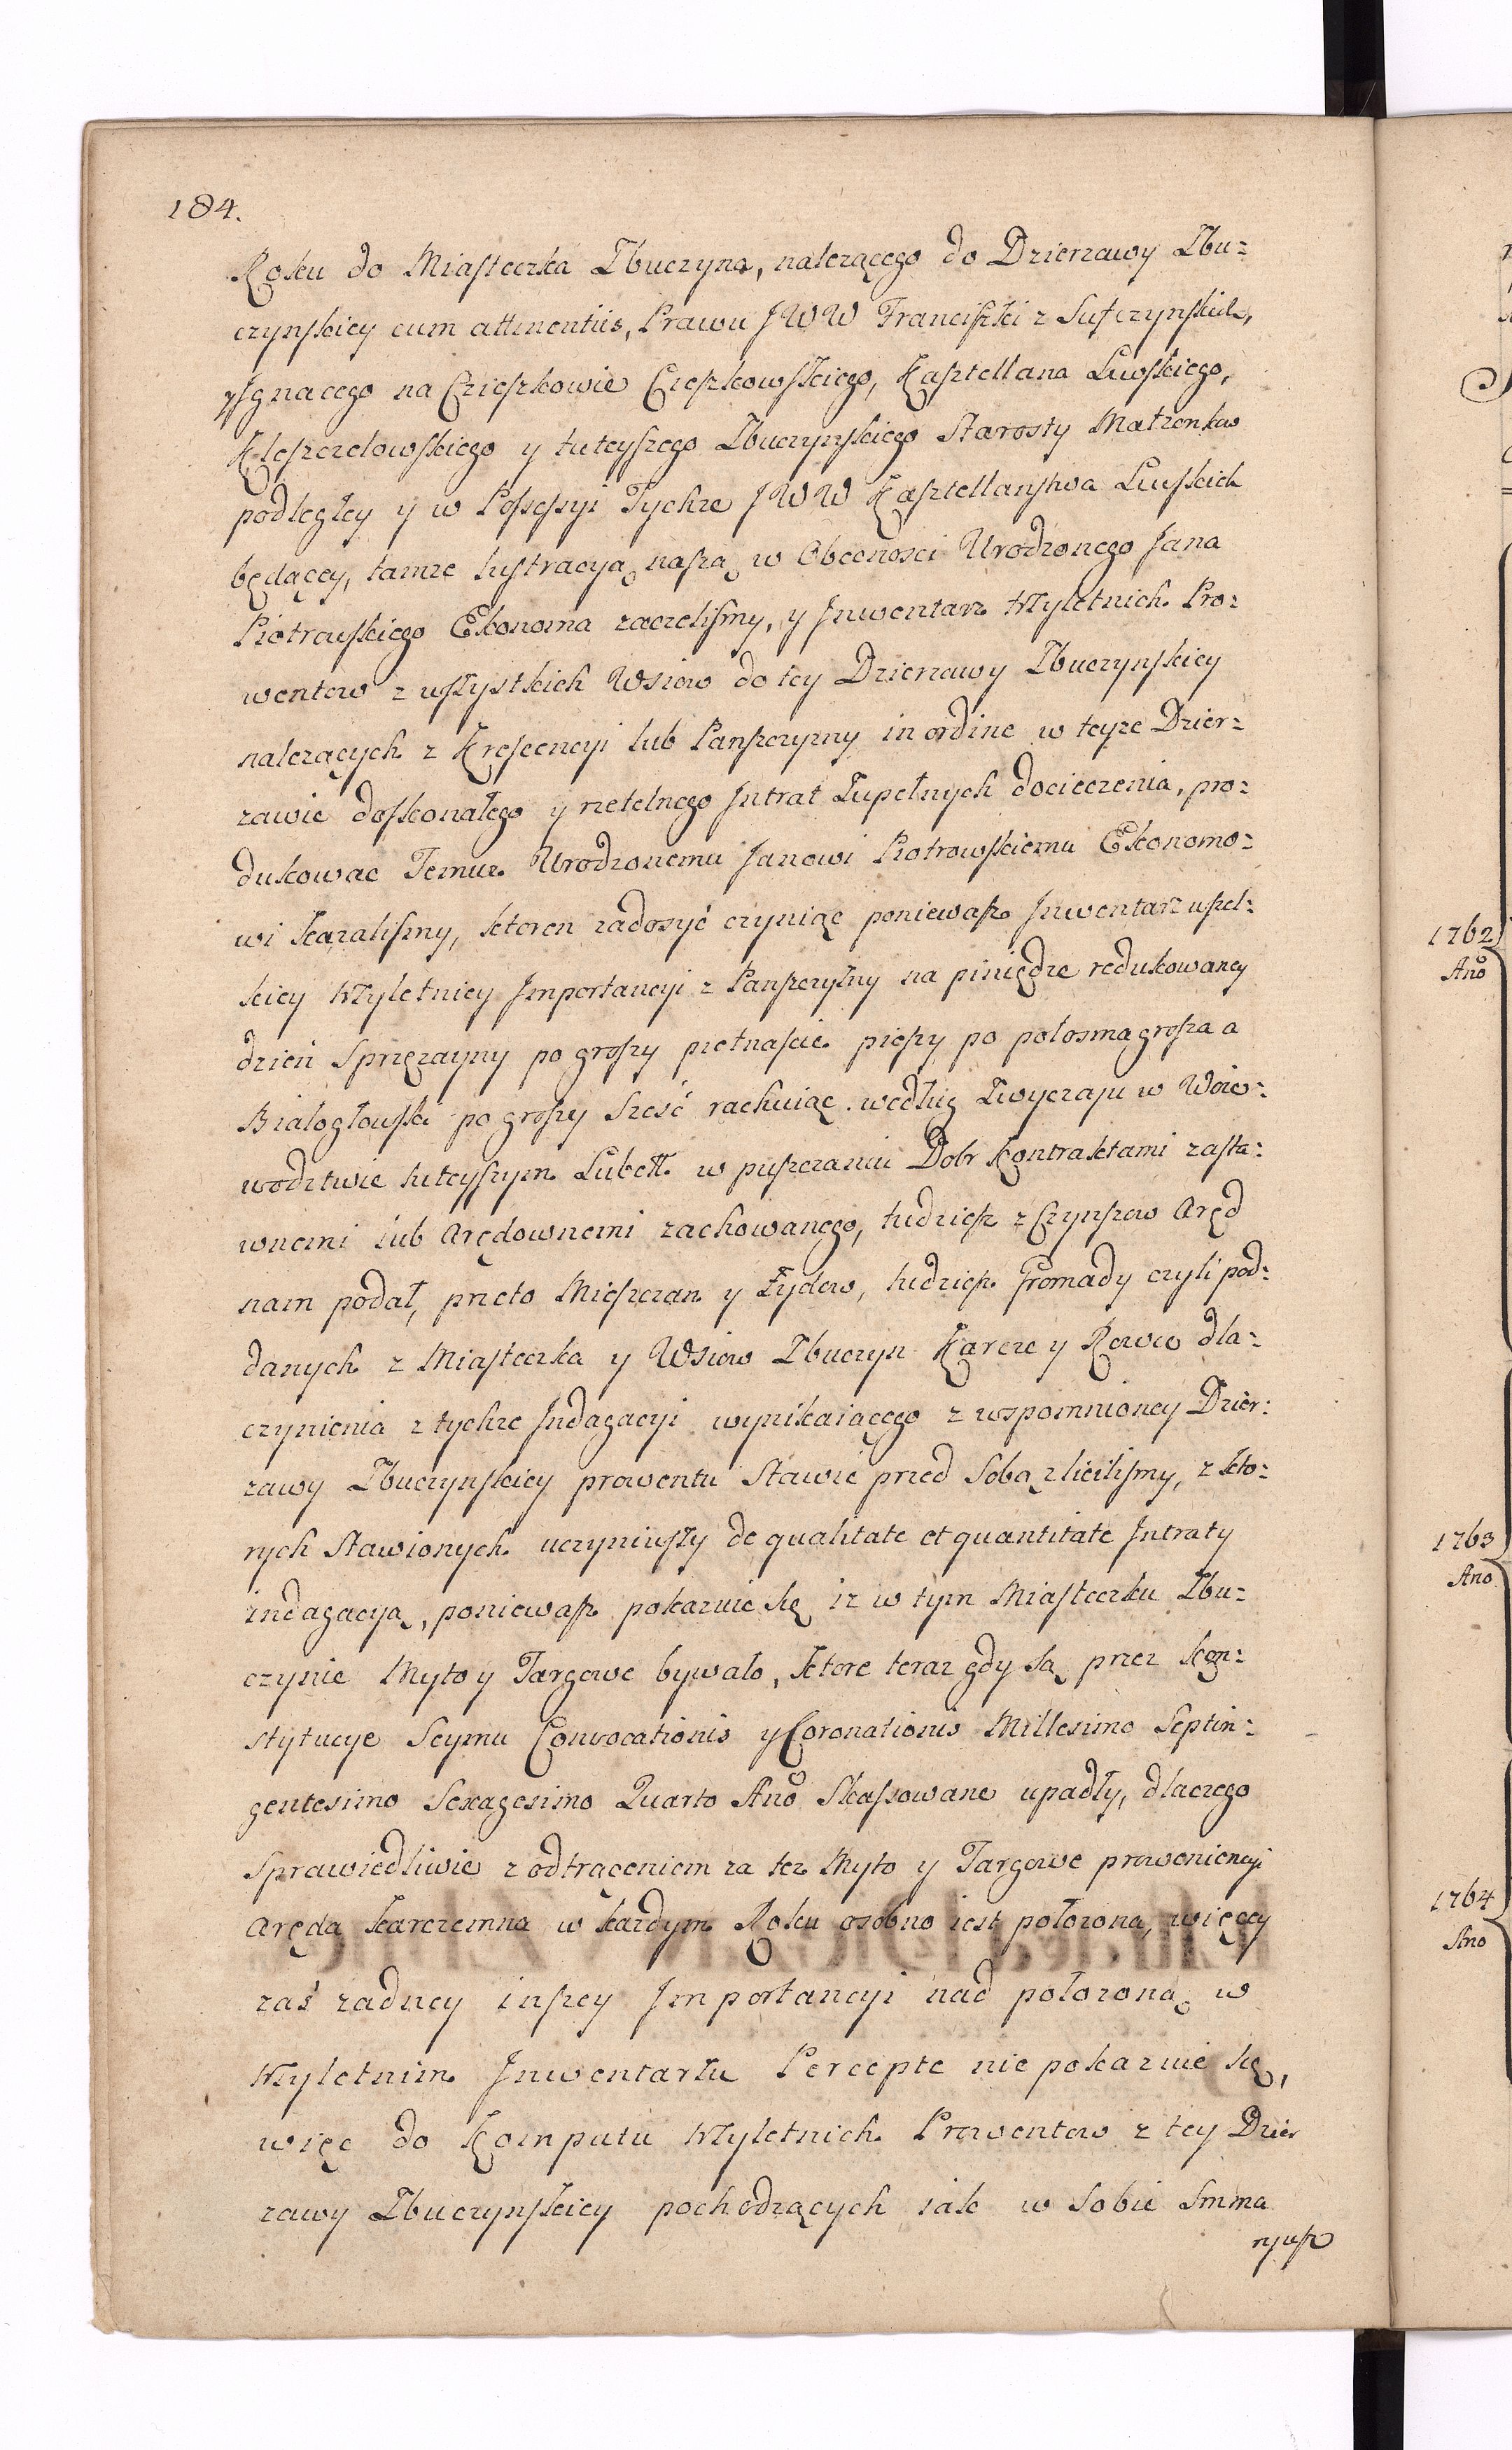 184.
Roku do Miasteczka Zbuczyna, należącego do Dzierzawy Zbu=
czynskiey cum attinentiis, Prawu JWW Franciszki z Sufczynskich,
y Ignacego na Czieszkowie Cieszkowskiego, Kasztellana Liwskiego,
Kleszczelowskiego y tuteyszego Zbuczynskiego Starosty Małzonkow
podległey y w Possessyi Tychze JWW Kasztellanstwa Liwskich
będącey, tamze lustracyą naszą w Obecnosci Urodzonego Jana
Piotrowskiego Ekonoma zaczelismy, y Inwentarz Trzyletnich Pro=
wentow z wszystkich Wsiow do tey Dzierzawy Zbuczynskiey
nalezących z Krescencyi lub Panszczyzny in ordine w teyze Dzier=
zawie doskonałego y rzetelnego Intrat Zupełnych docieczenia, pro=
dukowac Temuz Urodzonemu Janowi Piotrowskiemu Ekonomo=
wi kazalismy, ktoren zadosyć czyniąc poniewasz Inwentarz wszel=
kiey Trzyletniey Importancyi z Panszczyzny na piniędze redukowaney
dzień Sprzęzayny po groszy pietnascie pieszy po połosma grosza a
Białogłowski po groszy sześć rachuiąc według Zwyczaju w Woie=
wodztwie tuteyszym Lubell. w puszczaniu Dobr Kontraktami zasta=
wnemi lub Arędownemi zachowanego, tudziesz z Czynszow Aręd
nam podał, przeto Mieszczan y Zydow, tudziesz Gromady czyli pod=
danych z Miasteczka y Wsiow Zbuczyn Karcze y Rowce dla=
czynienia z tychze Indagacyi wynikaiącego z wspomnioney Dzier=
zawy Zbuczynskiey prowentu Stawić przed Sobą zlicilismy, z kto=
rych Stawionych uczyniwszy de qualitate et quantitate Intraty
indagacyą, poniewasz pokazuie się iz w tym Miasteczku Zbu=
czynie Myto y Targowe bywało, ktore teraz gdy są przez kon=
stytucye Seymu Convocationis y Coronationis Millesimo Septin=
gentesimo Sexagesimo Quarto Ano Skassowane upadły, dlaczego
Sprawiedliwie z odtrąceniem za tez Myto y Targowe proweniencyi
Aręda karczemna w kazdym Roku osobno iest połozona, więcey
zaś zadney inszey Importancyi nad połozoną w
Trzyletnim Inwentarzu Percepte nie pokazuie się,
więc do Komputu Trzyletnich Prowentow z tey Dzier
zawy Zbuczynskiey pochodzących iak w Sobie Summa
ryusz
1762
Ano
1763
Ano
1764
Ano